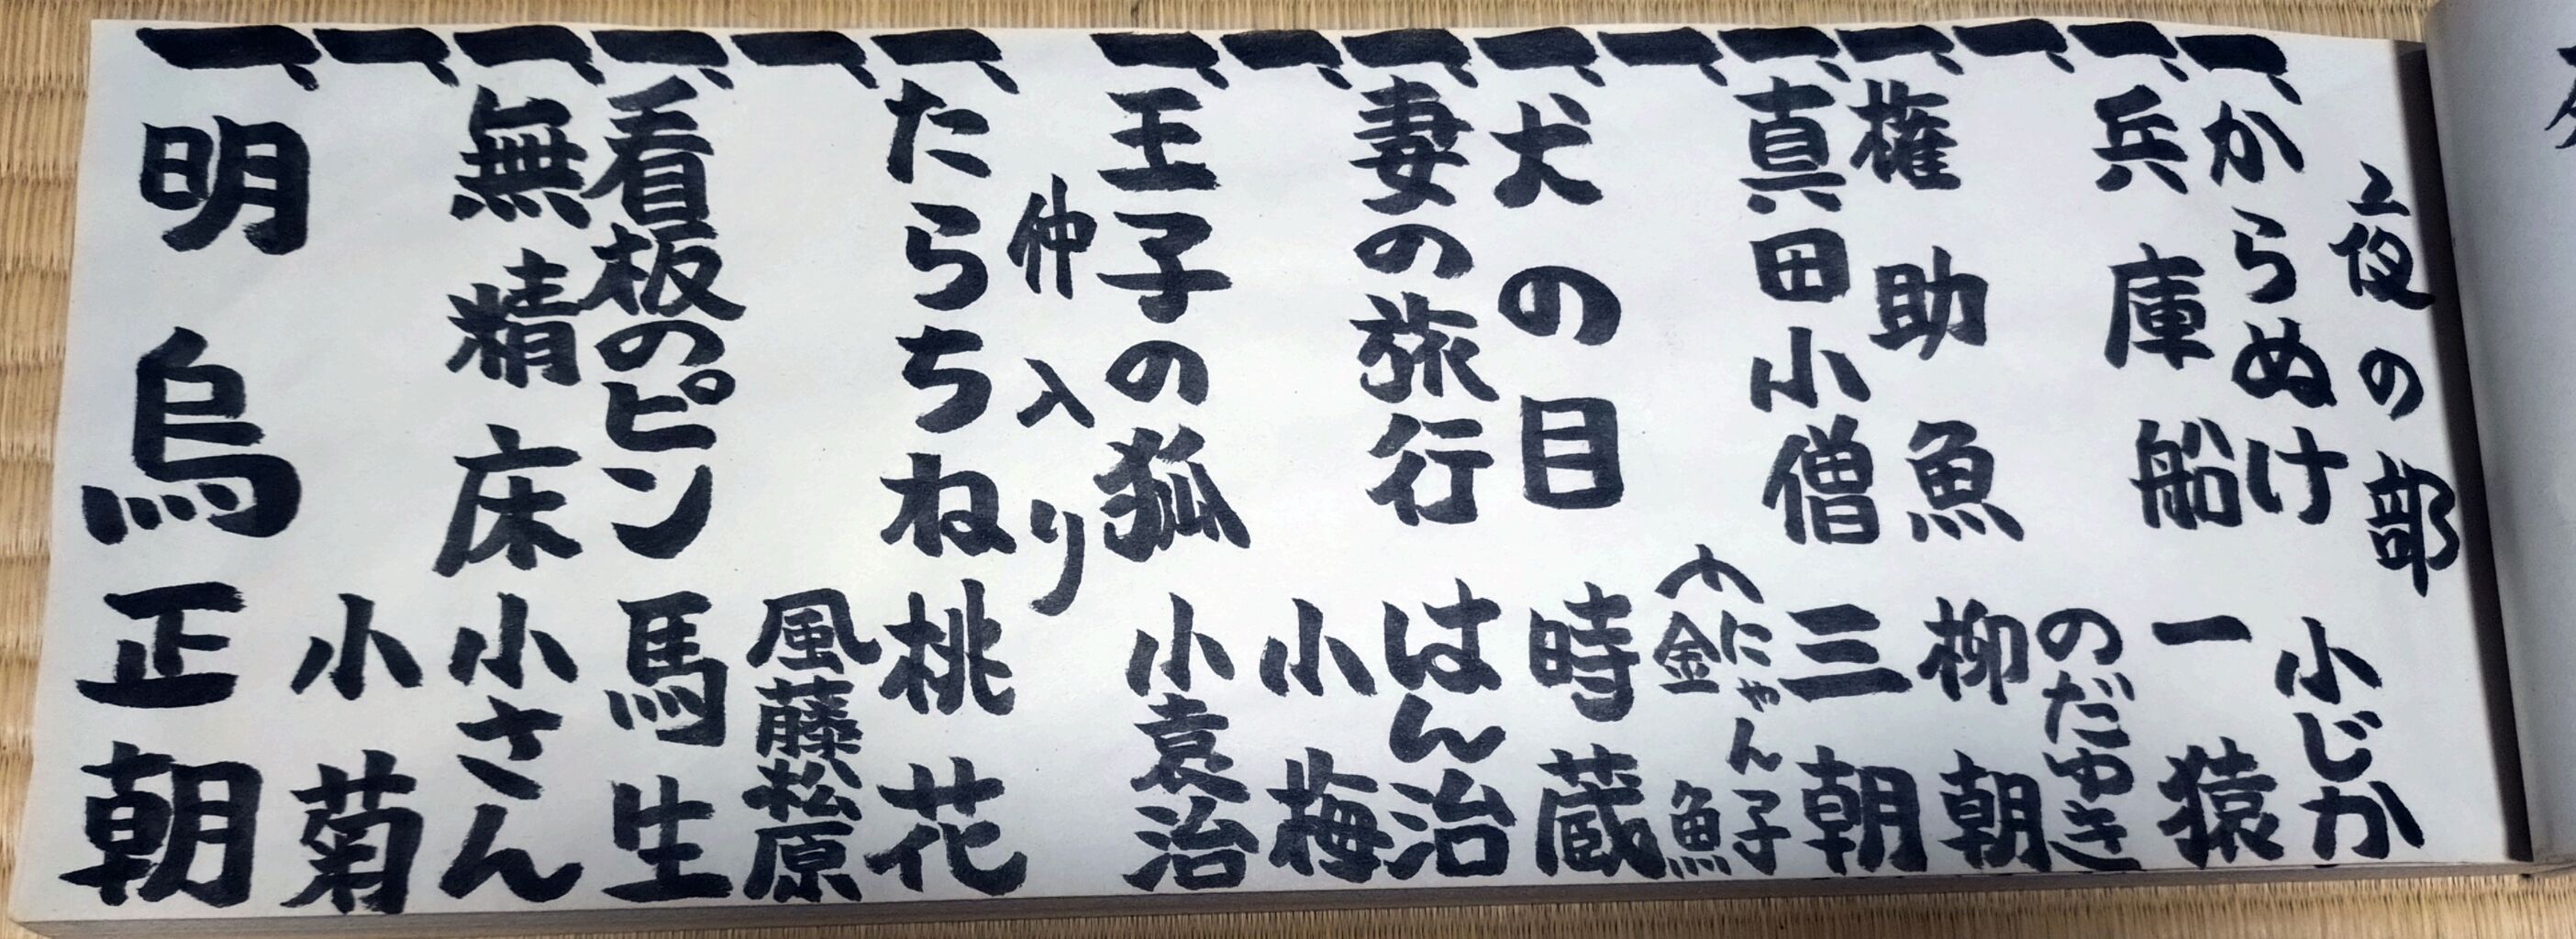 夜の部
一、からぬけ 小じか
一、兵庫船 一猿
一、 のだゆき
一、権助魚 柳朝
一、真田小僧 三朝
一、 にゃん子 金魚
一、犬の目 時蔵
一、妻の旅行 はん治
一、 小梅
一、王子の狐 小袁治
仲入り
一、たらちね 桃花
一、 風藤松原
一、看板のピン 馬生
一、無精床 小さん
一、 小菊
一、明烏 正朝